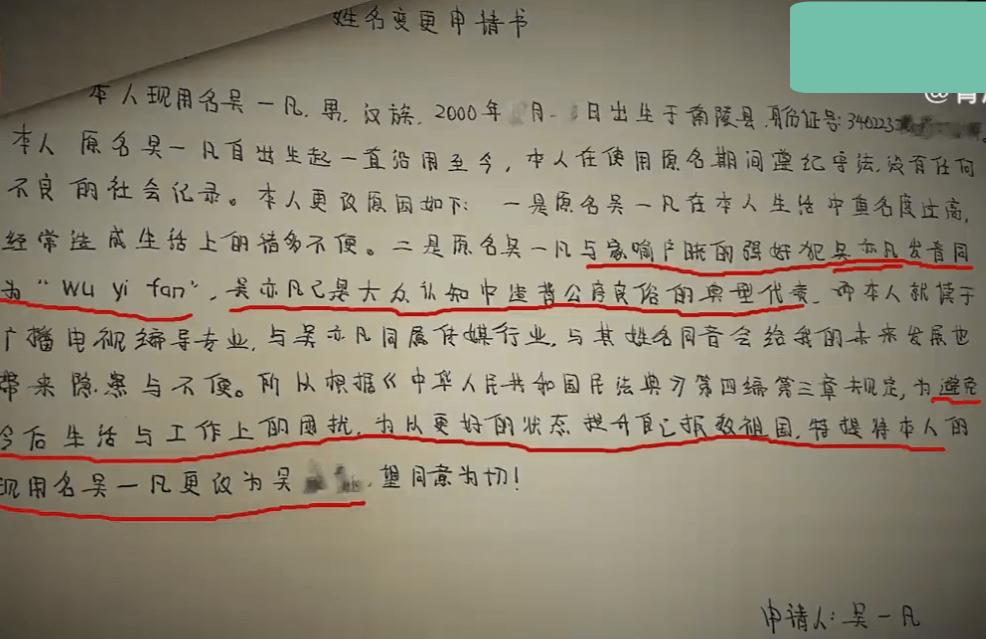 姓名变更申请书
本人现用名吴一凡,男,汉族,2000年 月 日出生于南陵县,身份证号:340223
本人原名吴一凡自出生起一直沿用至今,本人在使用原名期间遵纪守法,没有任何
不良的社会记录。本人更改原因如下:一是原名吴一凡在本人生活中重名度过高,
经常造成生活上的诸多不便。二是原名吴一凡与家喻户晓的强奸犯吴亦凡发音同
为“Wu yi fan”,吴亦凡已是大众认知中违背公序良俗的典型代表,而本人就读于
广播电视编导专业,与吴亦凡同属传媒行业,与其姓名同音会给我的未来发展也
带来隐患与不便。所以根据《中华人民共和国民法典》第四编第三章规定,为避免
今后生活与工作上的困扰,为以更好的状态提升自己报效祖国,特提将本人的
现用名吴一凡更改为吴 ,望同意为切!
申请人:吴一凡